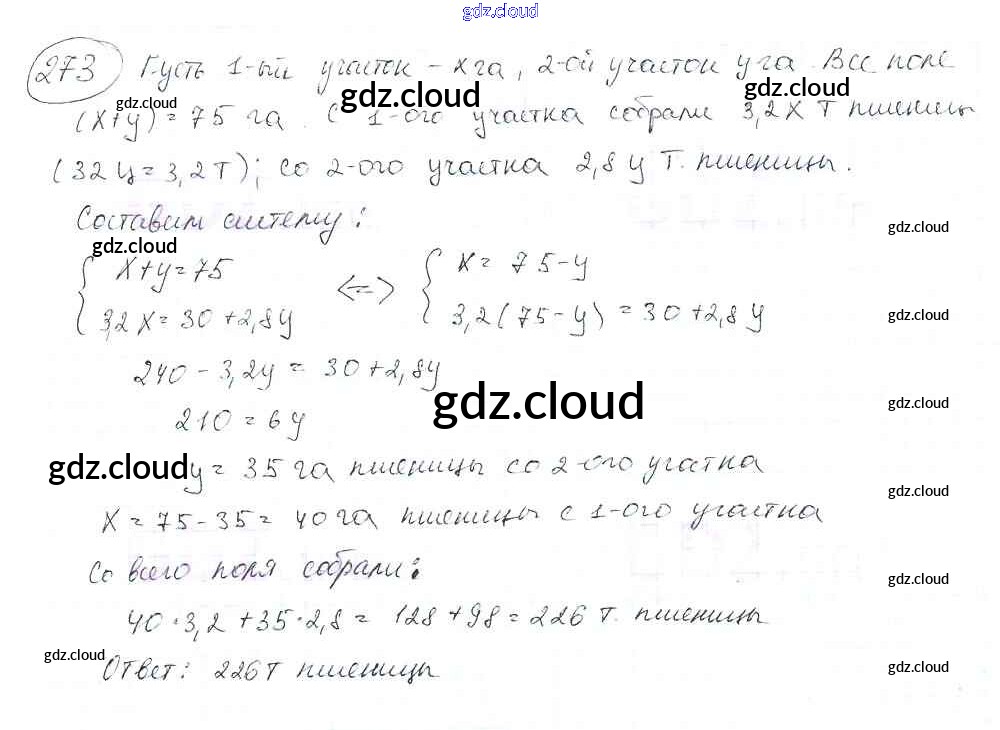 gdz.cloud
273 Пусть 1-ый участок - x га, 2-ой участок y га. Все поле
gdz.cloud gdz.cloud gdz.cloud
(x+y) = 75 га. С 1-ого участка собрали 3,2x т пшеницы
(32 ц = 3,2 т); со 2-ого участка 2,8 y т. пшеницы.
Составим систему:
gdz.cloud
gdz.cloud
{ x+y=75 <=> { x = 75-y
3,2 x = 30 + 2,8y 3,2(75-y) = 30+2,8y
gdz.cloud
240 - 3,2y = 30+2,8y
gdz.cloud
gdz.cloud
210 = 6y
gdz.cloud y = 35 га пшеницы со 2-ого участка
gdz.cloud
x = 75-35 = 40 га пшеницы с 1-ого участка
Со всего поля собрали:
gdz.cloud
40·3,2 + 35·2,8 = 128 + 98 = 226 т. пшеницы
gdz.cloud
Ответ: 226 т пшеницы
gdz.cloud